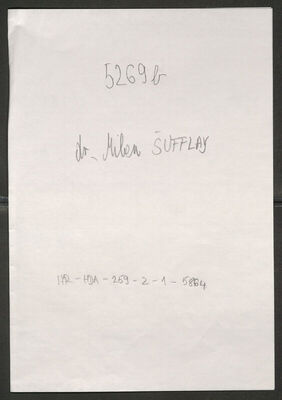 5269b
dr. Milan ŠUFFLAY
HR-HDA-259-2-1-5864